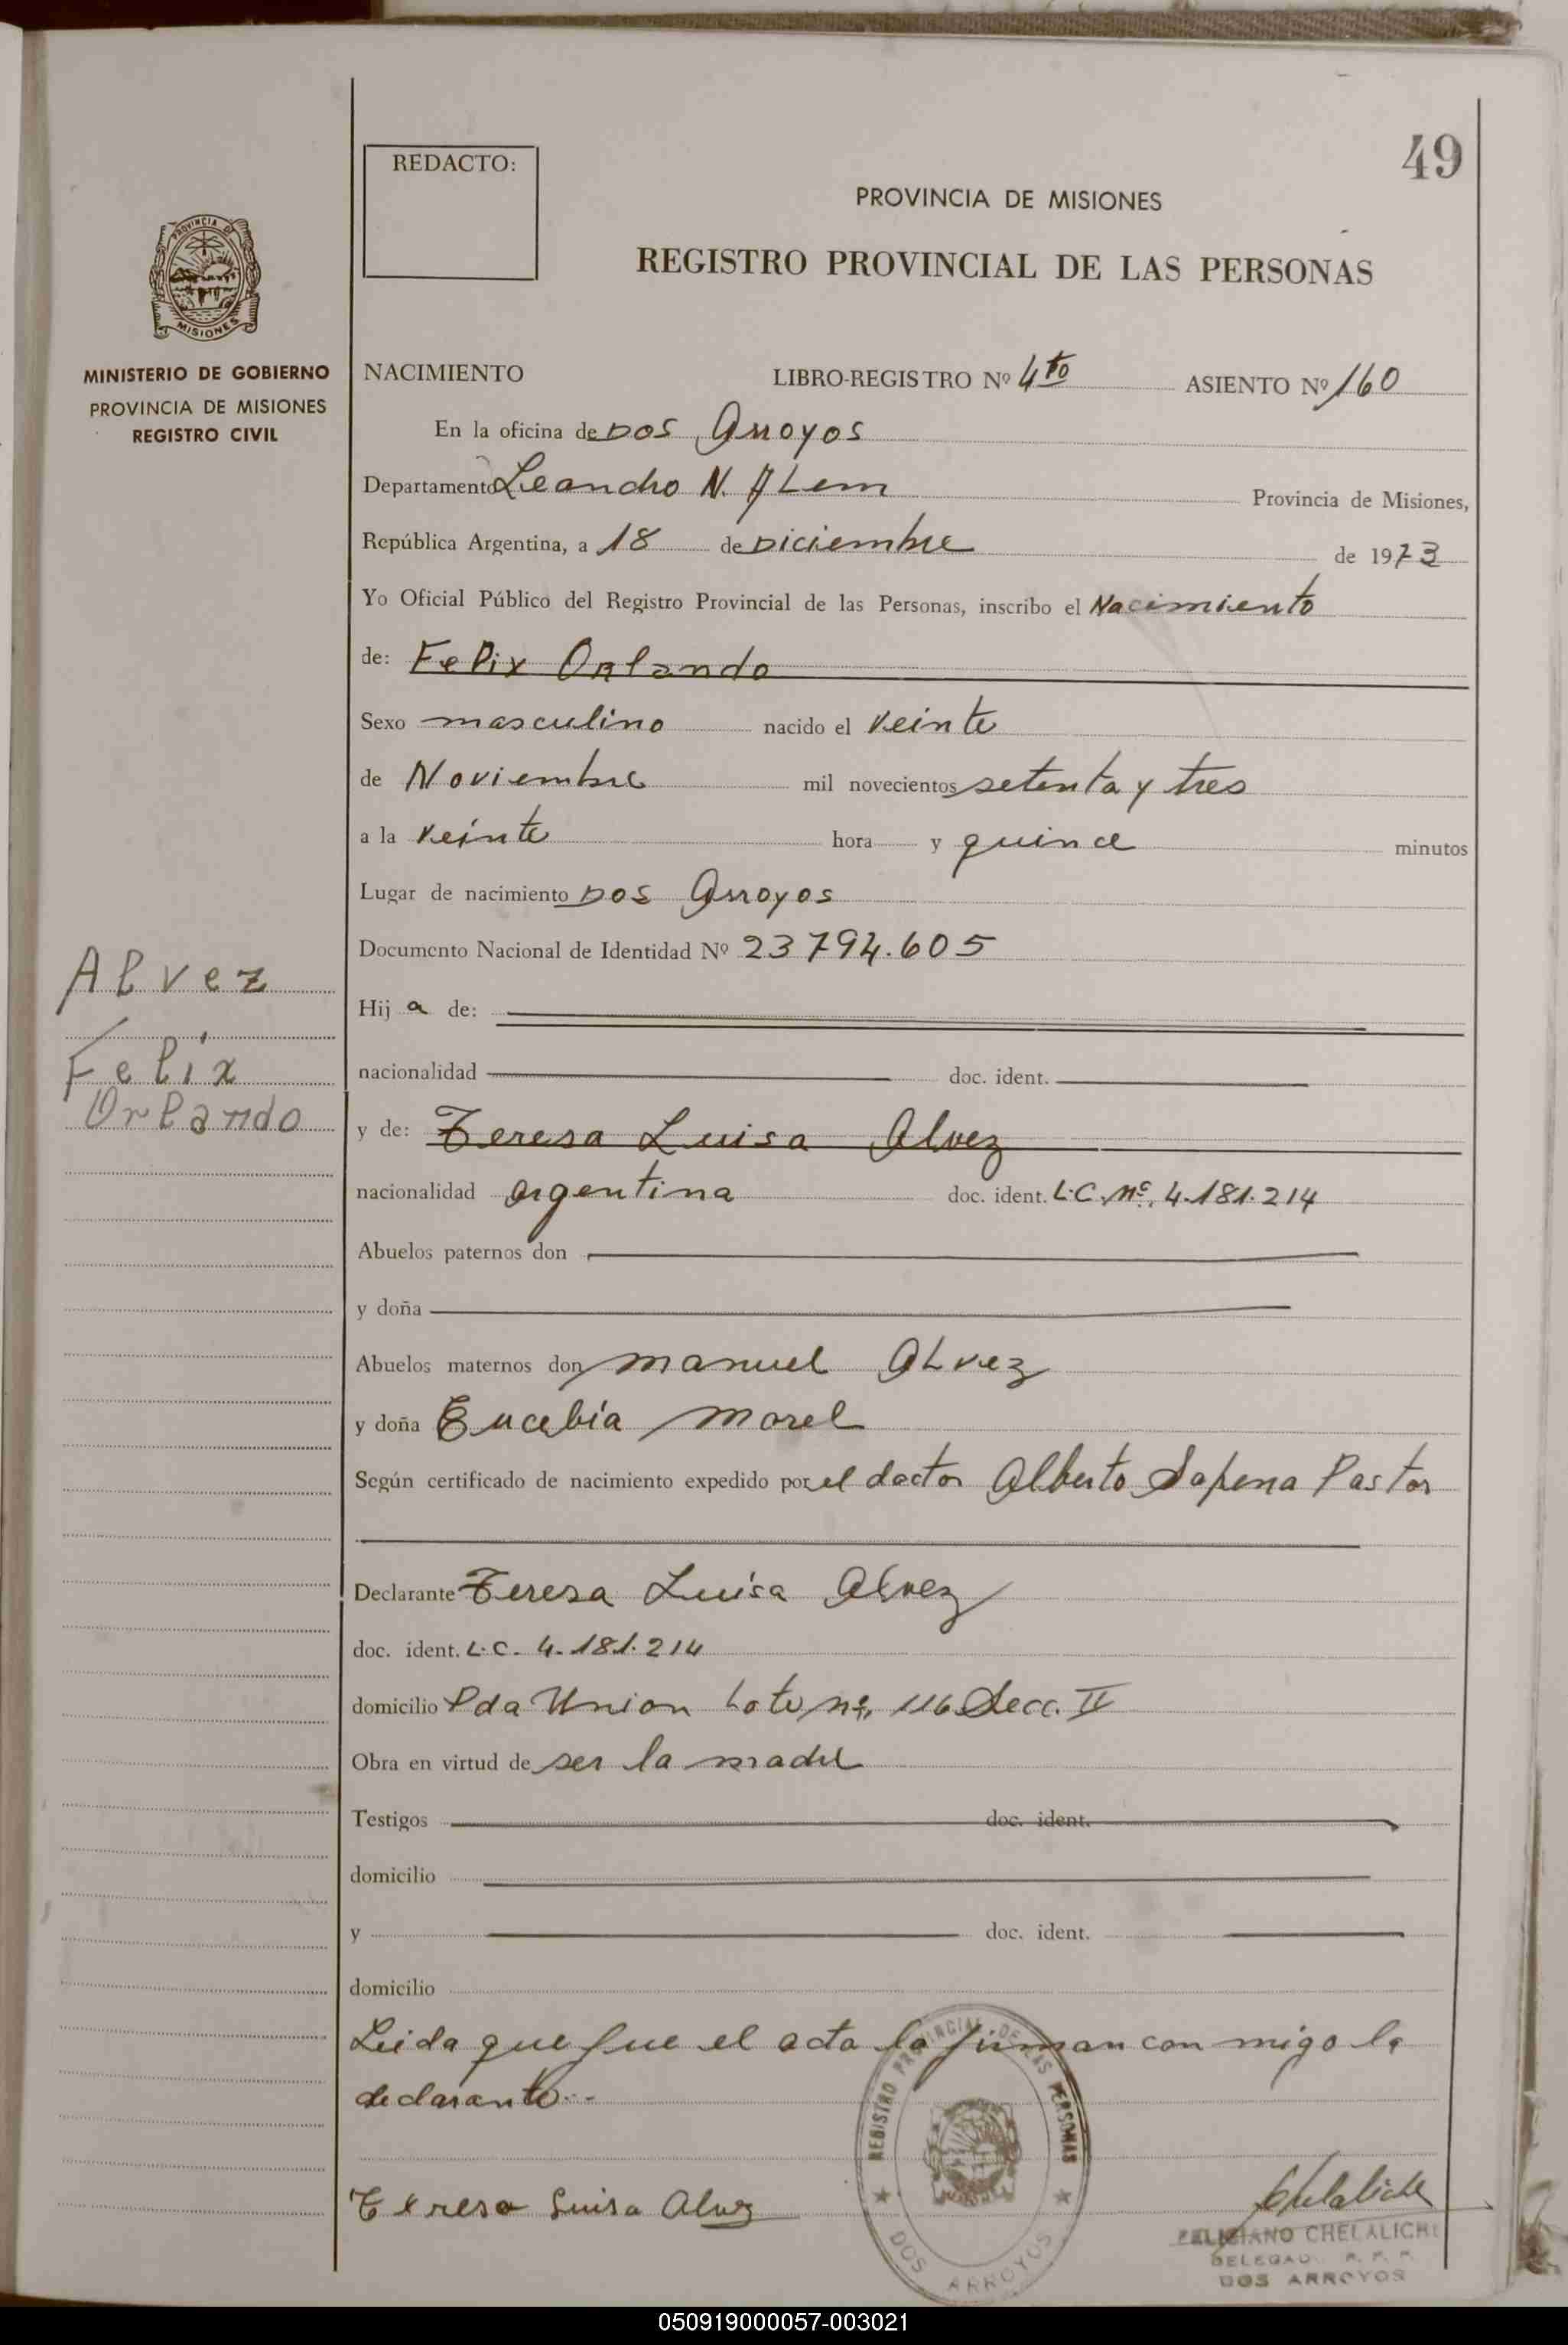 49
REDACTO:
PROVINCIA DE MISIONES
REGISTRO PROVINCIAL DE LAS PERSONAS
PROVINCIA DE
MISIONES
MINISTERIO DE GOBIERNO
PROVINCIA DE MISIONES
REGISTRO CIVIL
NACIMIENTO LIBRO-REGISTRO Nº 4to ASIENTO Nº 160
En la oficina de Dos Arroyos
Departamento Leandro N. ALem Provincia de Misiones,
República Argentina, a 18 de Diciembre de 1973
Yo Oficial Público del Registro Provincial de las Personas, inscribo el Nacimiento
de: Felix Orlando
Sexo masculino nacido el veinte
de Noviembre mil novecientos setenta y tres
a la veinte hora y quince minutos
Lugar de nacimiento Dos Arroyos
Documento Nacional de Identidad Nº 23794.605
Alvez
Felix
Orlando
Hij a de:
nacionalidad doc. ident.
y de: Teresa Luisa Alvez
nacionalidad argentina doc. ident. L.C. nº. 4.181.214
Abuelos paternos don
y doña
Abuelos maternos don manuel ALvez
y doña Eucebia morel
Según certificado de nacimiento expedido por el doctor Alberto Sapena Pastor
Declarante Teresa Luisa Alvez
doc. ident. L.C. 4.181.214
domicilio Pda Union Lote nº. 116 Secc. II
Obra en virtud de ser la madre
Testigos doc. ident.
domicilio
y doc. ident.
domicilio
Leida que fue el acta la firman con migo la
declarante.-
REGISTRO PROVINCIAL DE LAS PERSONAS
DOS ARROYOS
Teresa Luisa Alvez
Chelaliche
FELICIANO CHELALICHE
DELEGADO R. P. P.
DOS ARROYOS
050919000057-003021